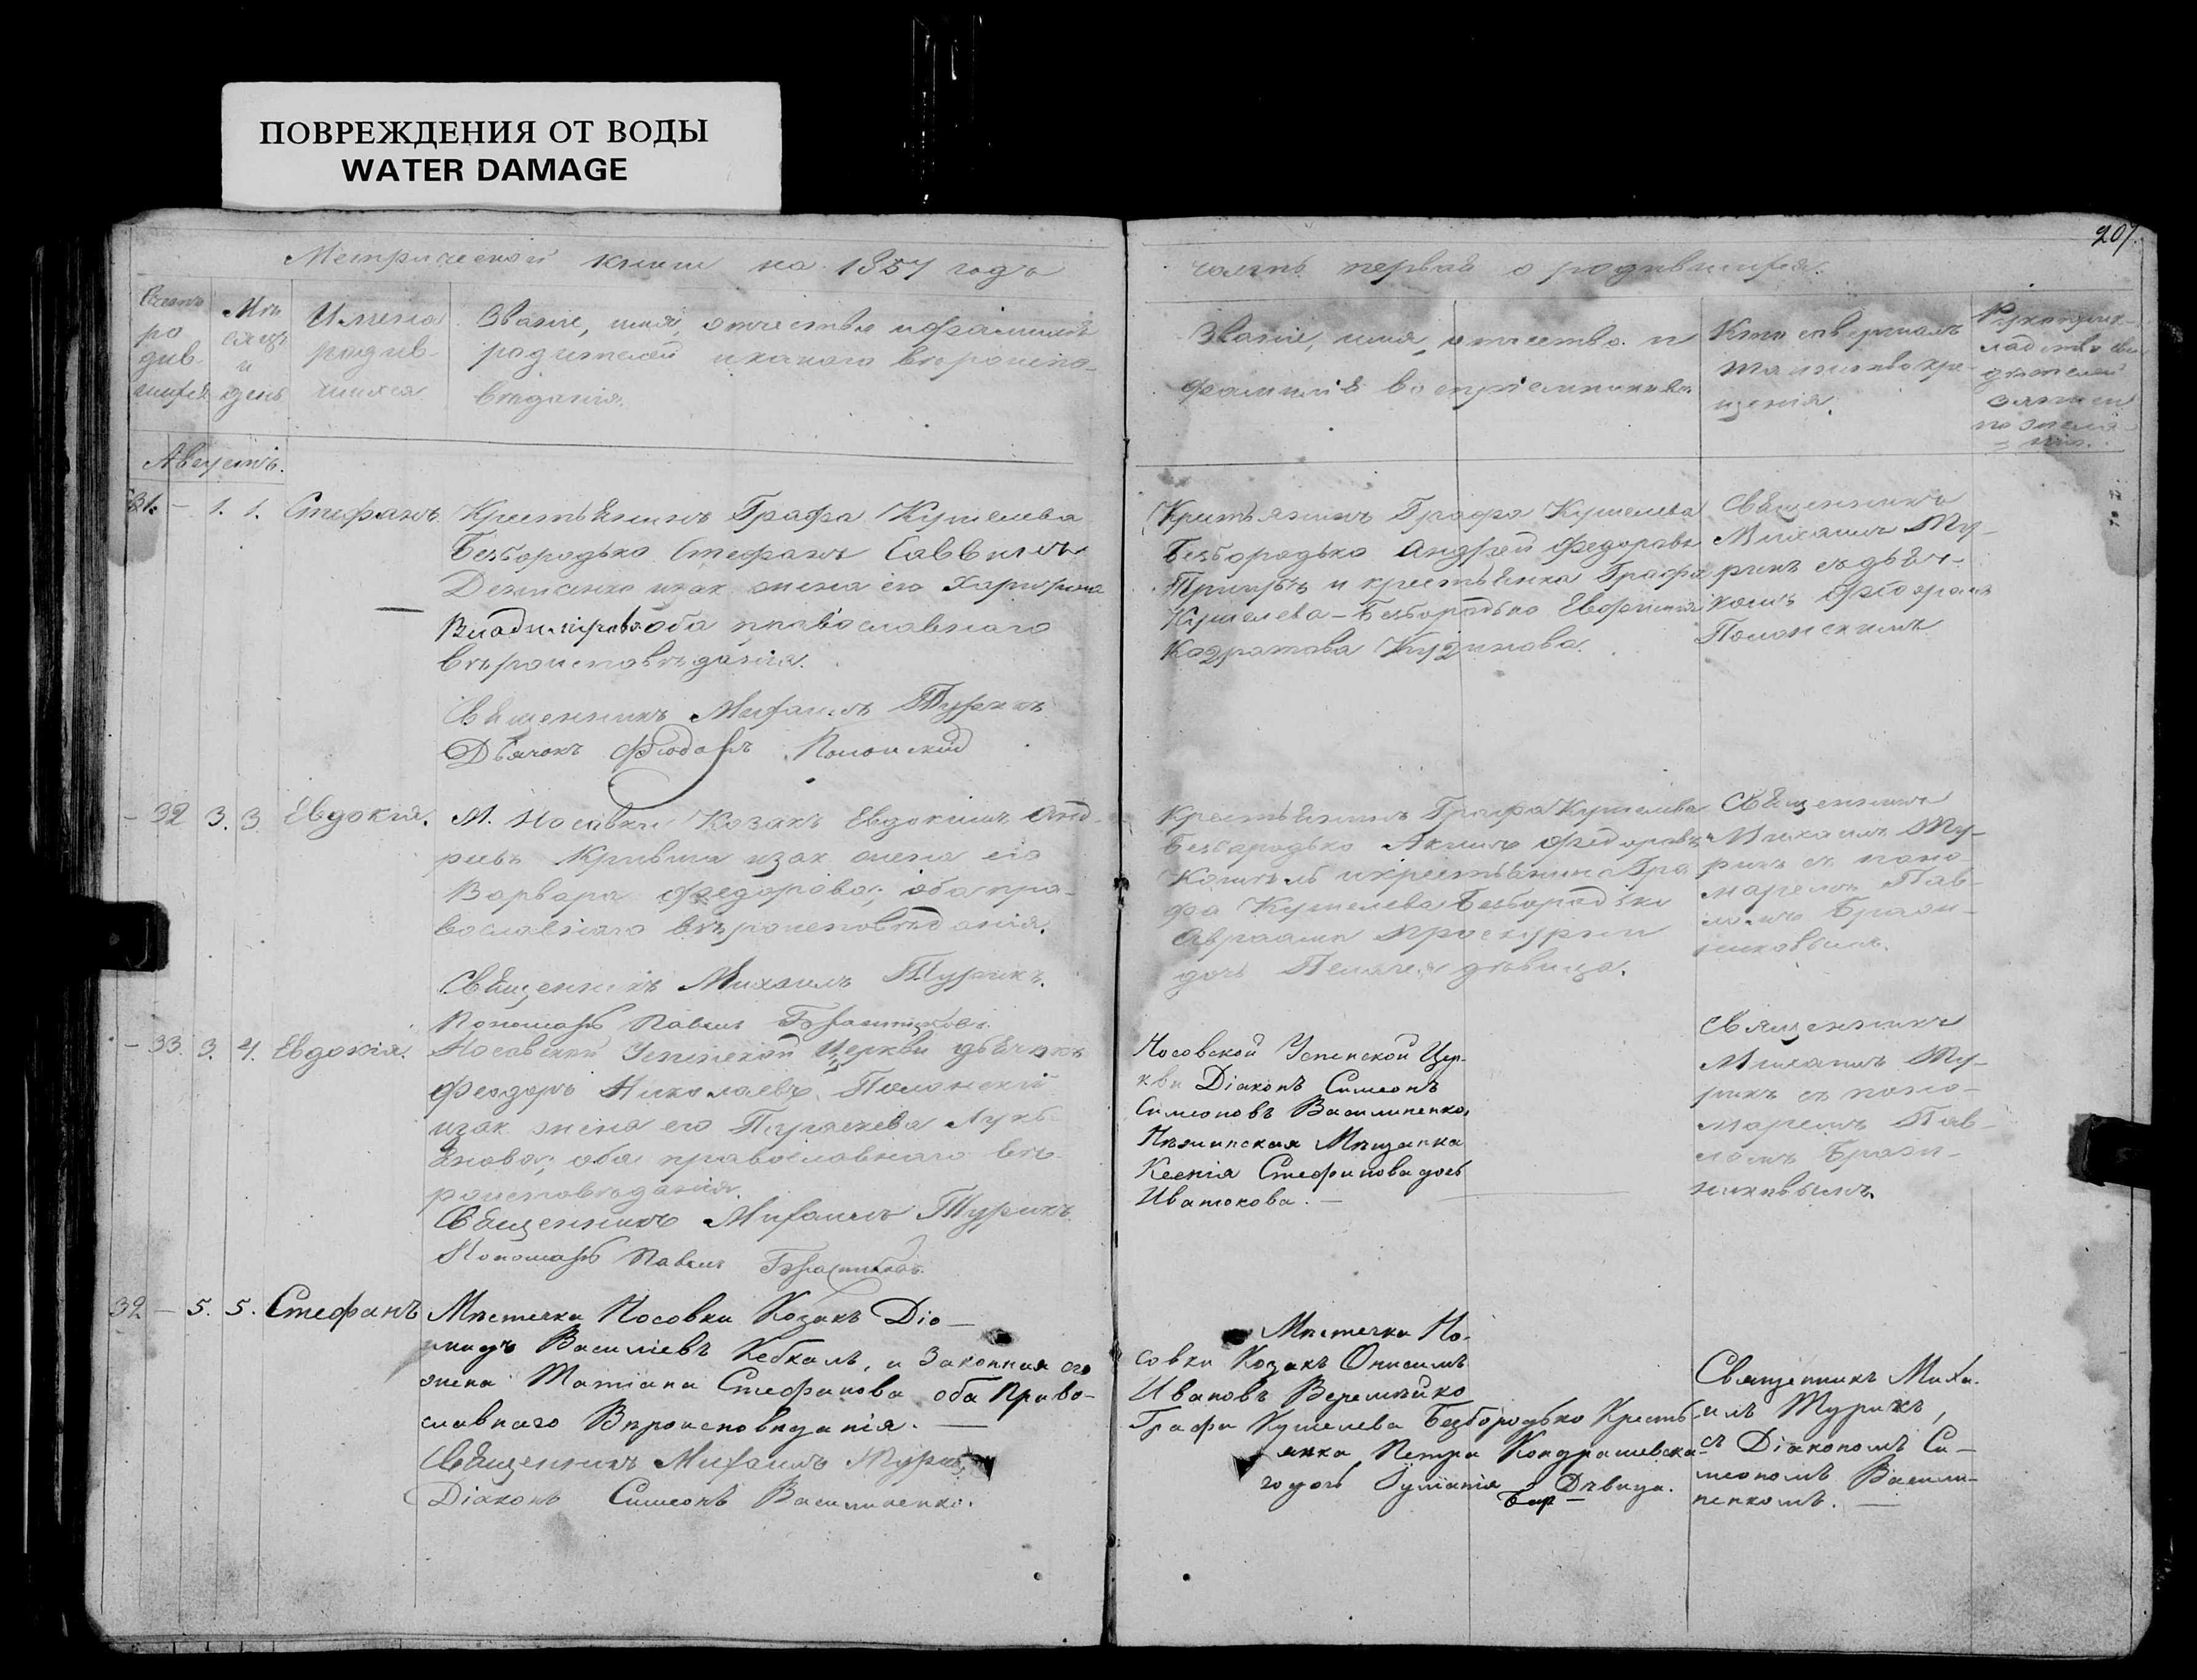 ПОВРЕЖДЕНИЯ ОТ ВОДЫ
WATER DAMAGE
207.
Метрической книги на 1857 годъ
часть первая о родившихся.
Мѣ
сяцъ
и
день
Имена
родив-
шихся
Званіе, имя, отчество и фамилія
родителей и какого вѣроиспо-
вѣданія.
Званіе, имя, отчество и
фамилія воспріемниковъ
Кто совершалъ
таинство кре-
щенія.
Августъ.
31. – 1. 1. Стефанъ
Крестьянинъ Графа Кушелева
Безбородька Стефанъ Саввинъ
Денисенко изак. жена его
оба православнаго
вѣроисповѣданія.
Священникъ Михаилъ Турикъ
Дьячокъ Феодоръ Полонскій
Крестьянинъ Графа Кушелева
Безбородька Андрей Федоровъ
и крестьянка Графа
Кушелева-Безбородько Евфимія
Священникъ
Михаилъ Ту-
рикъ съ дьяч-
комъ Феодоромъ
Полонскимъ
– 32 3. 3 Евдокія.
М. Носовки Козакъ Евдокимъ Анд-
изак. жена его
Варвара Федорова; оба пра-
вославнаго вѣроисповѣданія.
Священникъ Михаилъ Турикъ.
Пономарь Павелъ
Крестьянинъ Графа Кушелева
Безбородько Федоровъ
и крестьянина Гра
фа Кушелева Безбородько
дочь Пелагея дѣвица.
Священникъ
Михаилъ Ту-
рикъ съ поно
маремъ Пав-
ломъ
– 33. 3. 4. Евдокія.
Носовской Успенской Церкви дьячокъ
Феодоръ Николаевъ Полонскій
изак. жена его Лукь-
янова; оба православнаго вѣ-
роисповѣданія.
Священникъ Михаилъ Турикъ
Пономарь Павелъ
Носовской Успенской Цер-
кви Діаконъ Симеонъ
Симеоновъ Василиненко,
Нѣжинская Мѣщанка
Ксенія Стефанова дочь
Иватокова. —
Священникъ
Михаилъ Ту-
рикъ съ поно-
маремъ Пав-
ломъ
32 – 5. 5. Стефанъ
Мѣстечка Носовки Козакъ Діо-
мидъ Василіевъ Кебкалъ, и Законная его
жена Татіана Стефанова оба Право-
славнаго Вѣроисповѣданія. —
Священникъ Михаилъ Турикъ
Діаконъ Симеонъ Василиненко.
Мѣстечка Но-
совки Козакъ Онисимъ
Ивановъ Веремѣйко
Графа Кушелева Безбородько Кресть-
янка Петра Кондрашевска-
го дочь Дѣвица.
Священникъ Миха-
илъ Турикъ,
съ Діакономъ Си-
меономъ Васили-
ненкомъ. —